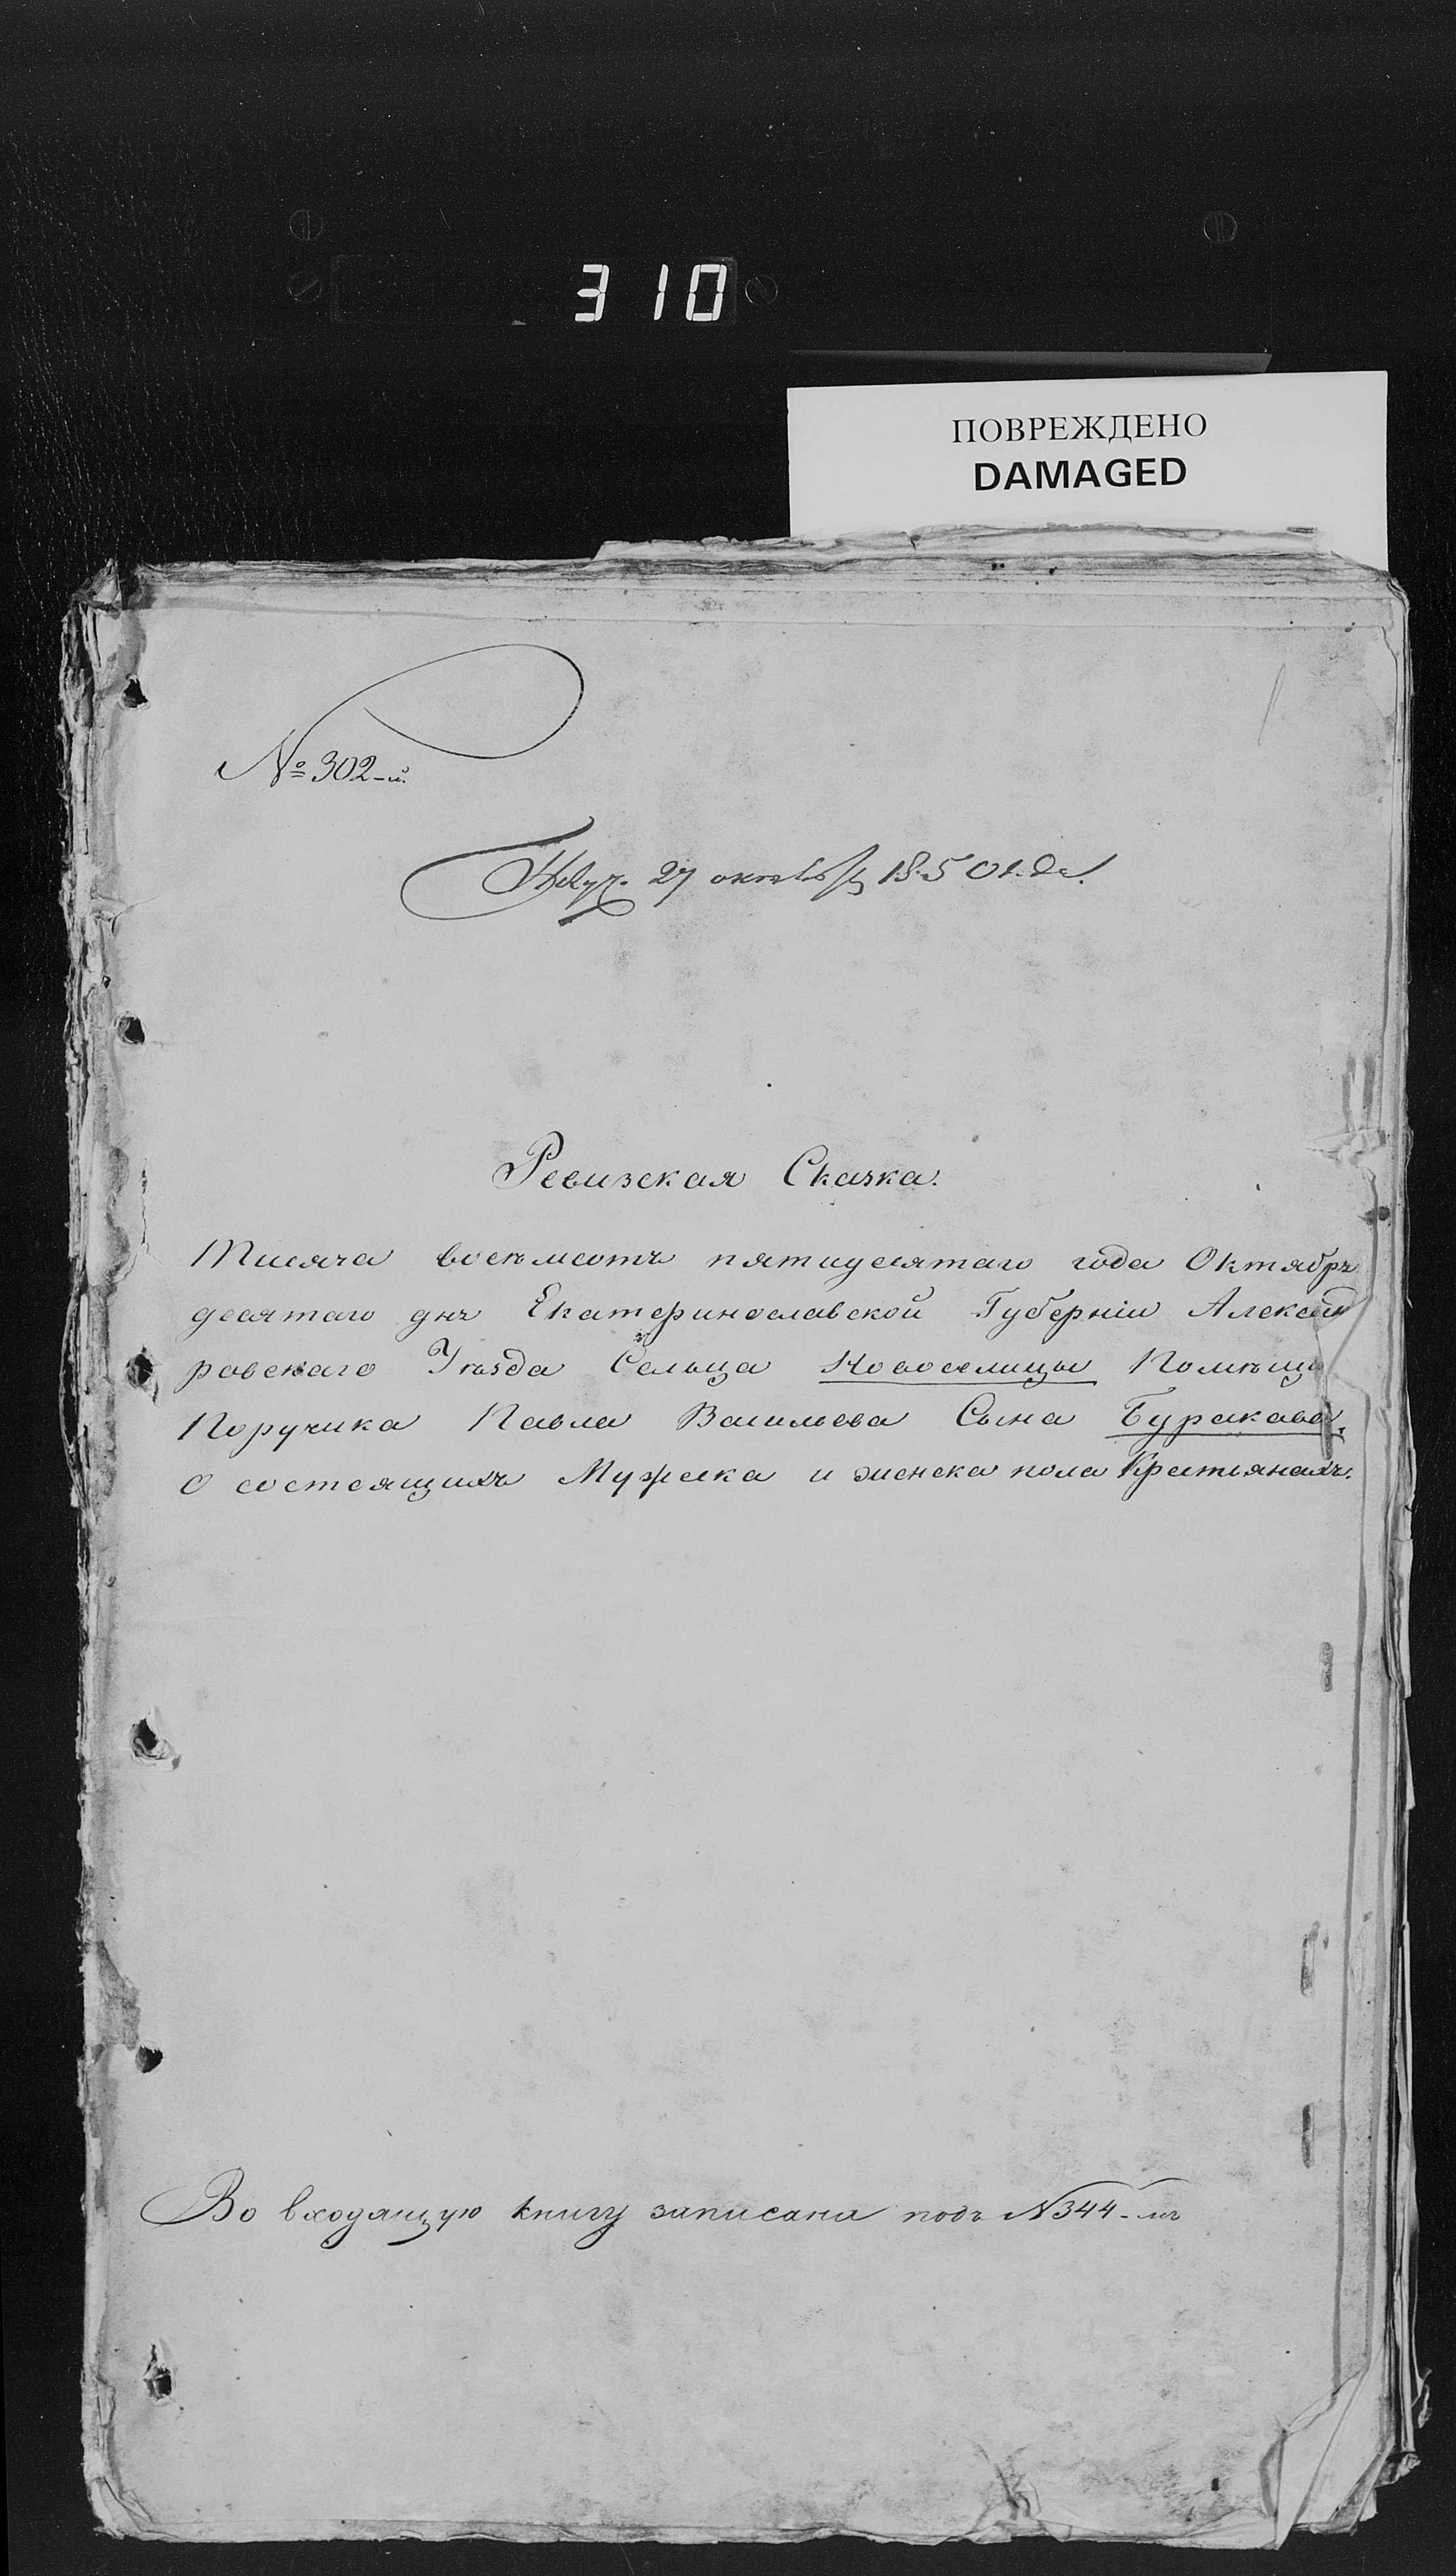 310
ПОВРЕЖДЕНО
DAMAGED
№ 302-й.
Получ. 27 октября 1850 года.
Ревизская Сказка.
Тисяча восемьсотъ пятидесятаго года Октябрь
десятаго днь Екатеринославской Губерніи Александ
ровскаго Уѣзда Сельца Новоселицы Помѣщи
Поручика Павла Васильева Сына Буракова,
о состоящихъ Мужеска и женска пола Крестьянахъ.
Во входящую книгу записана подъ № 344-мъ